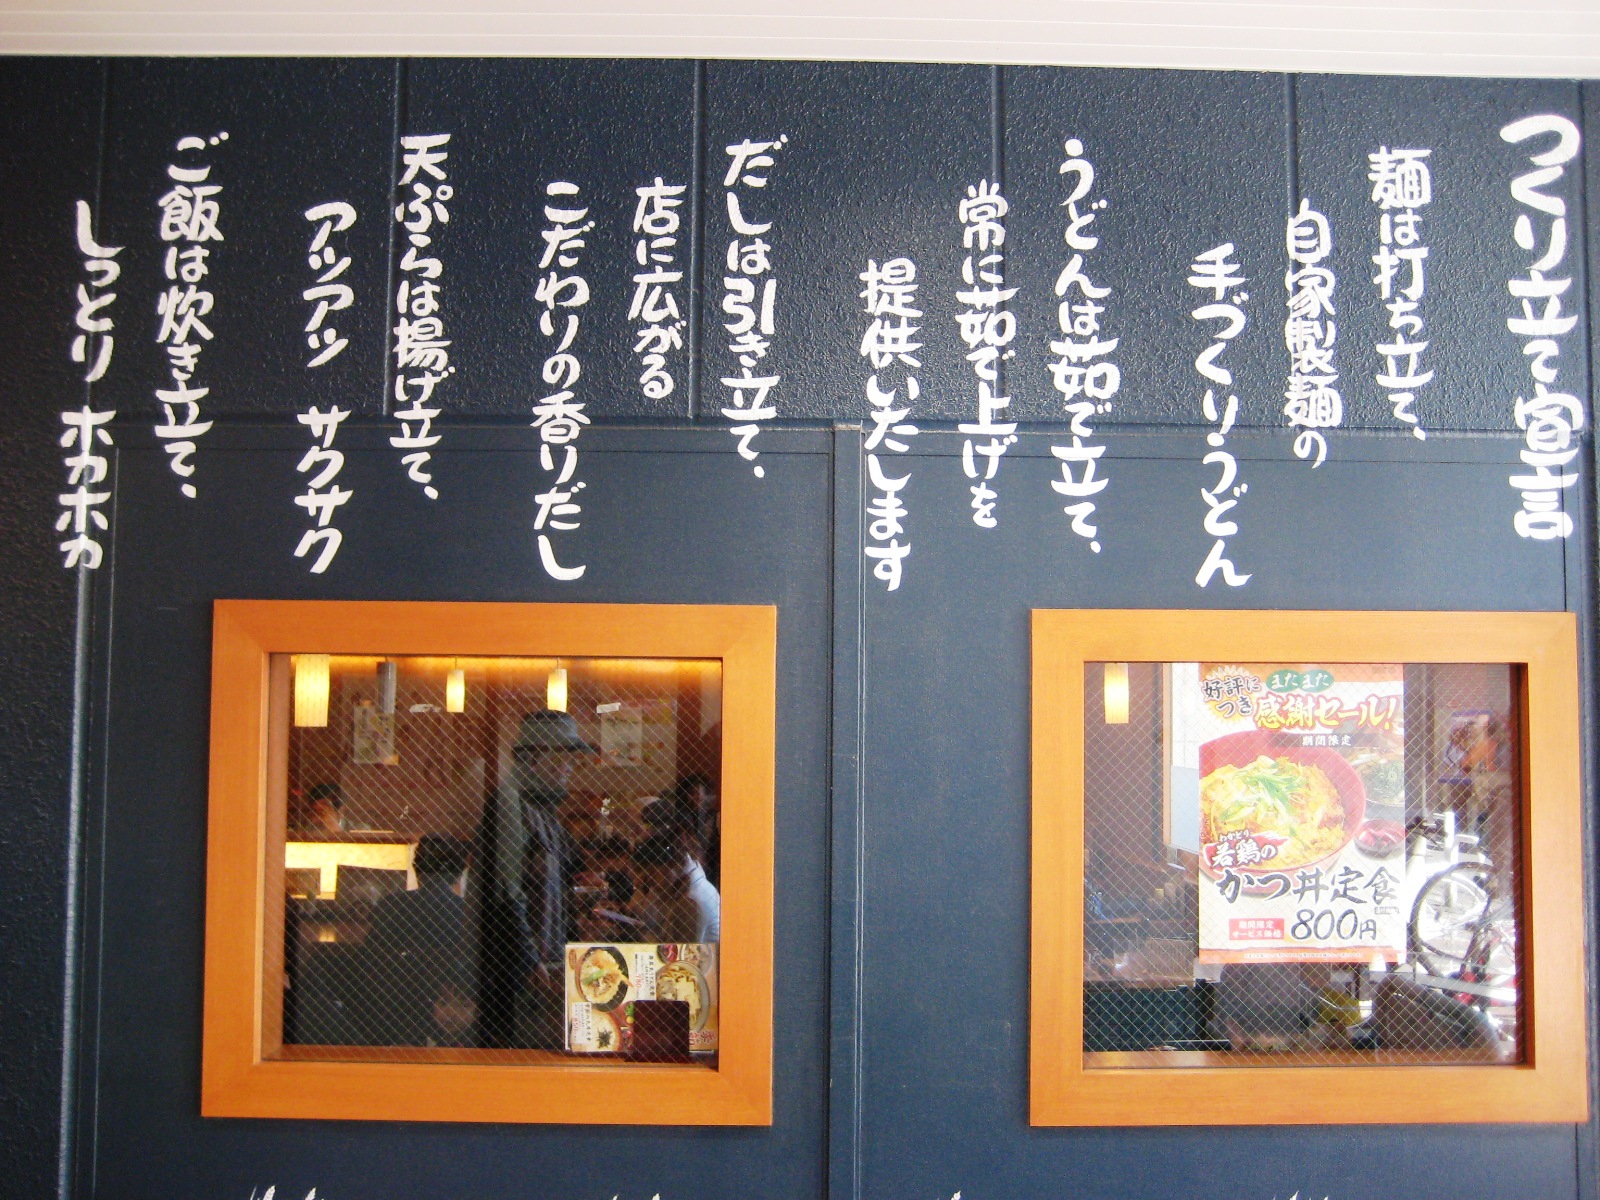 つくり立て宣言
麺は打ち立て、
自家製麺の
手づくりうどん
うどんは茹で立て、
常に茹で上げを
提供いたします
だしは引き立て、
店に広がる
こだわりの香りだし
天ぷらは揚げ立て、
アツアツ サクサク
ご飯は炊き立て、
しっとり ホカホカ
好評に
つき
まだまだ
感謝セール!
期間限定
わかどり
若鶏の
かつ丼定食
期間限定
サービス価格
800円